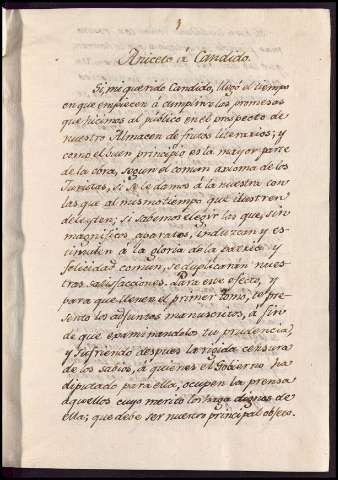 1
Aniceto á Candido.
Si, mi querido Candido, llegó el tiempo
en que empiecen á cumplirse las promesas
que hicimos al público en el prospecto de
nuestro Almacen de frutos literarios; y
como el buen principio es la mayor parte
de la obra, segun el comun axioma de los
Juristas, si se le damos á la nuestra con
las que al mismo tiempo que ilustren
deleyten; si sabemos elegir los que, sin
magnificos aparatos, induzcan y es-
timulen á la gloria de la patria y
felicidad comun, se duplicarán nues-
tras satisfacciones. Para este efecto, y
para que llenen el primer tomo, te pre-
sento los adjuntos manuscritos, á fin
de que examinandolos tu prudencia,
y sufriendo despues la rigida censura
de los sabios, á quienes el Gobierno ha
diputado para ella, ocupen la prensa
aquellos cuyo merito los haga dignos de
ella; que debe ser nuestro principal objeto.